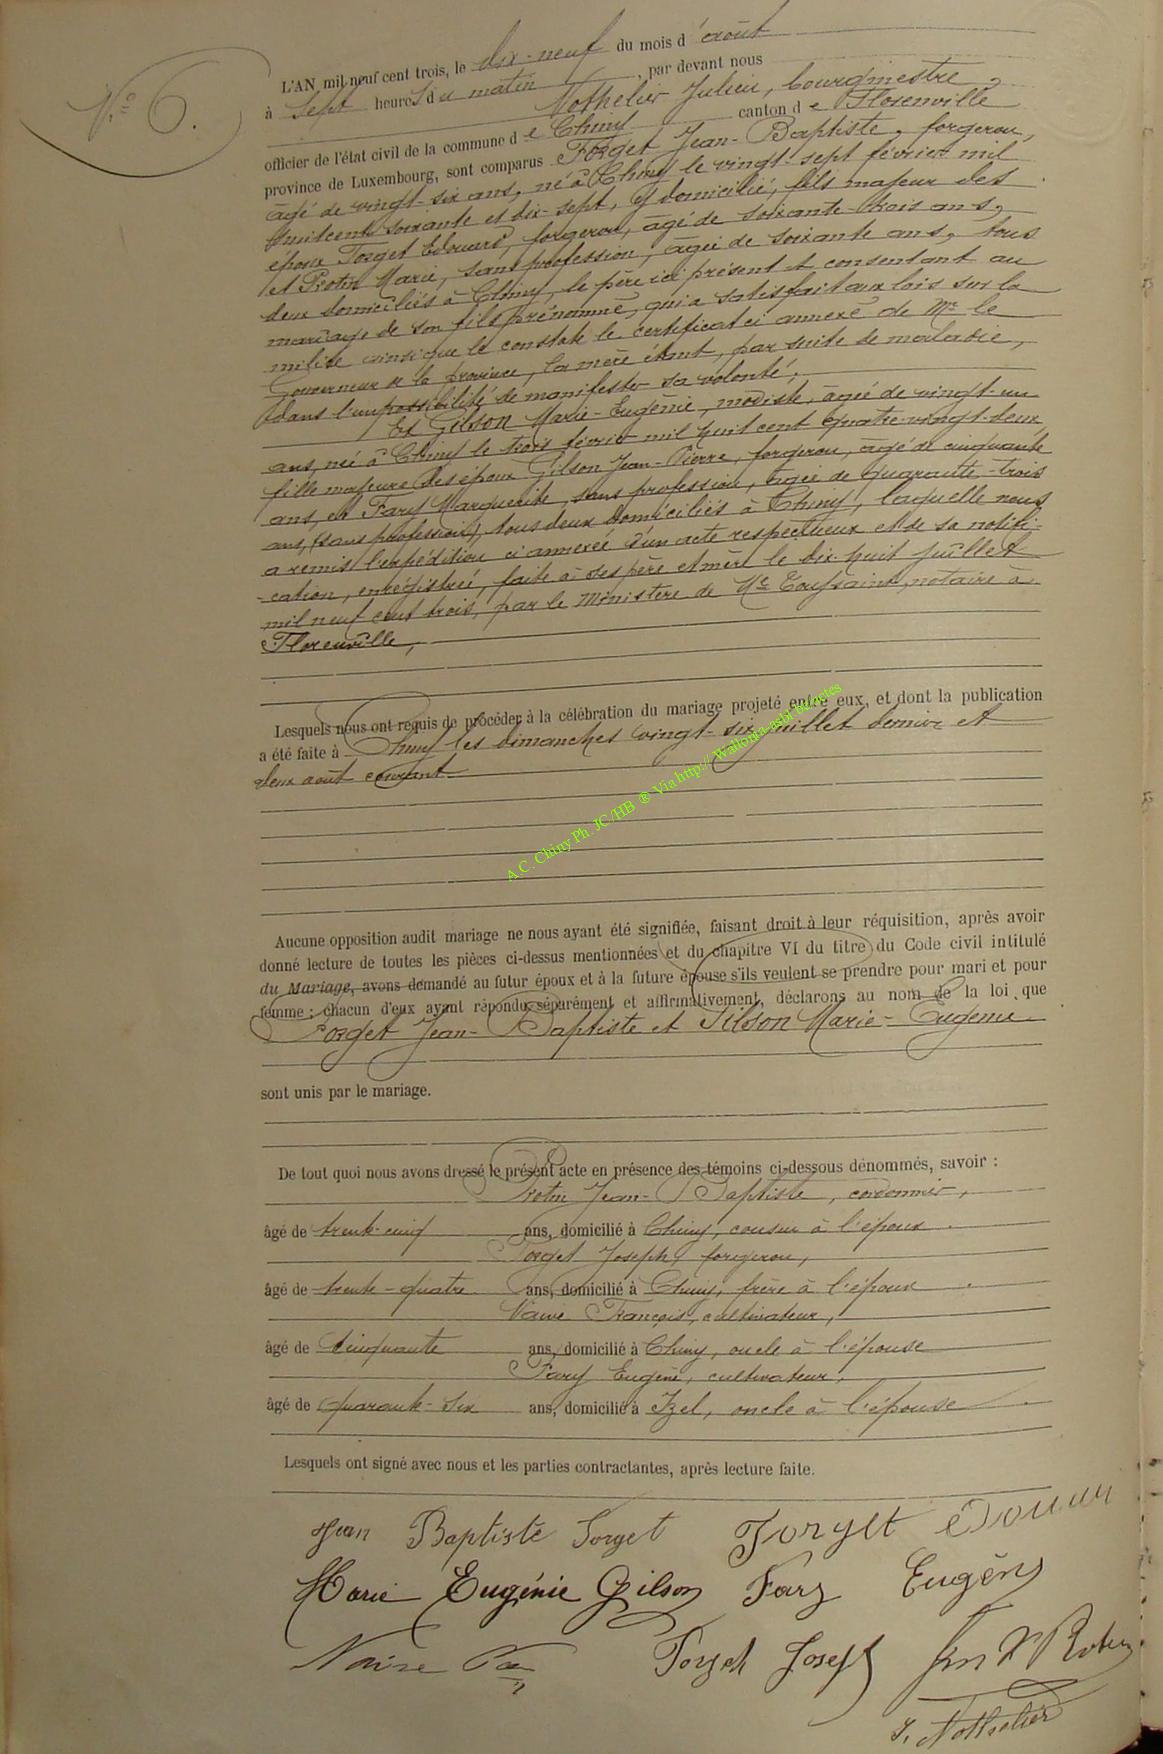 N.° 6.
L'AN mil neuf cent trois, le dix-neuf du mois d'août
à sept heures du matin, par devant nous
Nothelier Julien, bourgmestre,
officier de l'état civil de la commune de Chiny canton de Florenville
province de Luxembourg, sont comparus Forget Jean-Baptiste, forgeron,
âgé de vingt-six ans, né à Chiny le vingt-sept février mil
huit cent soixante et dix-sept, y domicilié, fils majeur des
époux Forget Edouard, forgeron, âgé de soixante-trois ans,
et Protin Marie, sans profession, âgée de soixante ans, tous
deux domiciliés à Chiny, le père ici présent et consentant au
mariage de son fils prénommé, qui a satisfait aux lois sur la
milice ainsi que le constate le certificat ci annexé de Mr le
Gouverneur de la province, la mère étant, par suite de maladie,
dans l'impossibilité de manifester sa volonté;
Et Gilson Marie-Eugénie, modiste, âgée de vingt-un
ans, née à Chiny le trois février mil huit cent quatre-vingt-deux
fille majeure des époux Gilson Jean-Pierre, forgeron, âgé de cinquante
ans, et Fary Marguerite, sans profession, âgée de quarante-trois
ans, (sans profession), tous deux domiciliés à Chiny, laquelle nous
a remis l'expédition ci annexée d'un acte respectueux et de sa notifi-
-cation, enregistrée, faite à ses père et mère le dix-huit juillet
mil neuf cent trois, par le Ministère de Me Toussaint, notaire à
Florenville,
Lesquels nous ont requis de procéder à la célébration du mariage projeté entre eux, et dont la publication
a été faite à Chiny les dimanches vingt-six juillet dernier et
deux août courant
A.C. Chiny Ph. JC/HB ® Via http://Wallonia-asbl be/actes
Aucune opposition audit mariage ne nous ayant été signifiée, faisant droit à leur réquisition, après avoir
donné lecture de toutes les pièces ci-dessus mentionnées et du chapitre VI du titre du Code civil intitulé
du Mariage, avons demandé au futur époux et à la future épouse s'ils veulent se prendre pour mari et pour
femme : chacun d'eux ayant répondu séparément et affirmativement, déclarons au nom de la loi que
Forget Jean-Baptiste et Gilson Marie-Eugénie
sont unis par le mariage.
De tout quoi nous avons dressé le présent acte en présence des témoins ci-dessous dénommés, savoir :
Protin Jean-Baptiste, cordonnier,
âgé de trente-cinq ans, domicilié à Chiny, cousin à l'époux
Forget Joseph, forgeron,
âgé de trente-quatre ans, domicilié à Chiny, frère à l'époux
François, cultivateur,
âgé de cinquante ans, domicilié à Chiny, oncle à l'épouse
Fary Eugène, cultivateur,
âgé de quarante-six ans, domicilié à Izel, oncle à l'épouse
Lesquels ont signé avec nous et les parties contractantes, après lecture faite.
Jean Baptiste Forget Forget Edouard
Marie Eugénie Gilson Fary Eugène
Forget Joseph
J. Nothelier